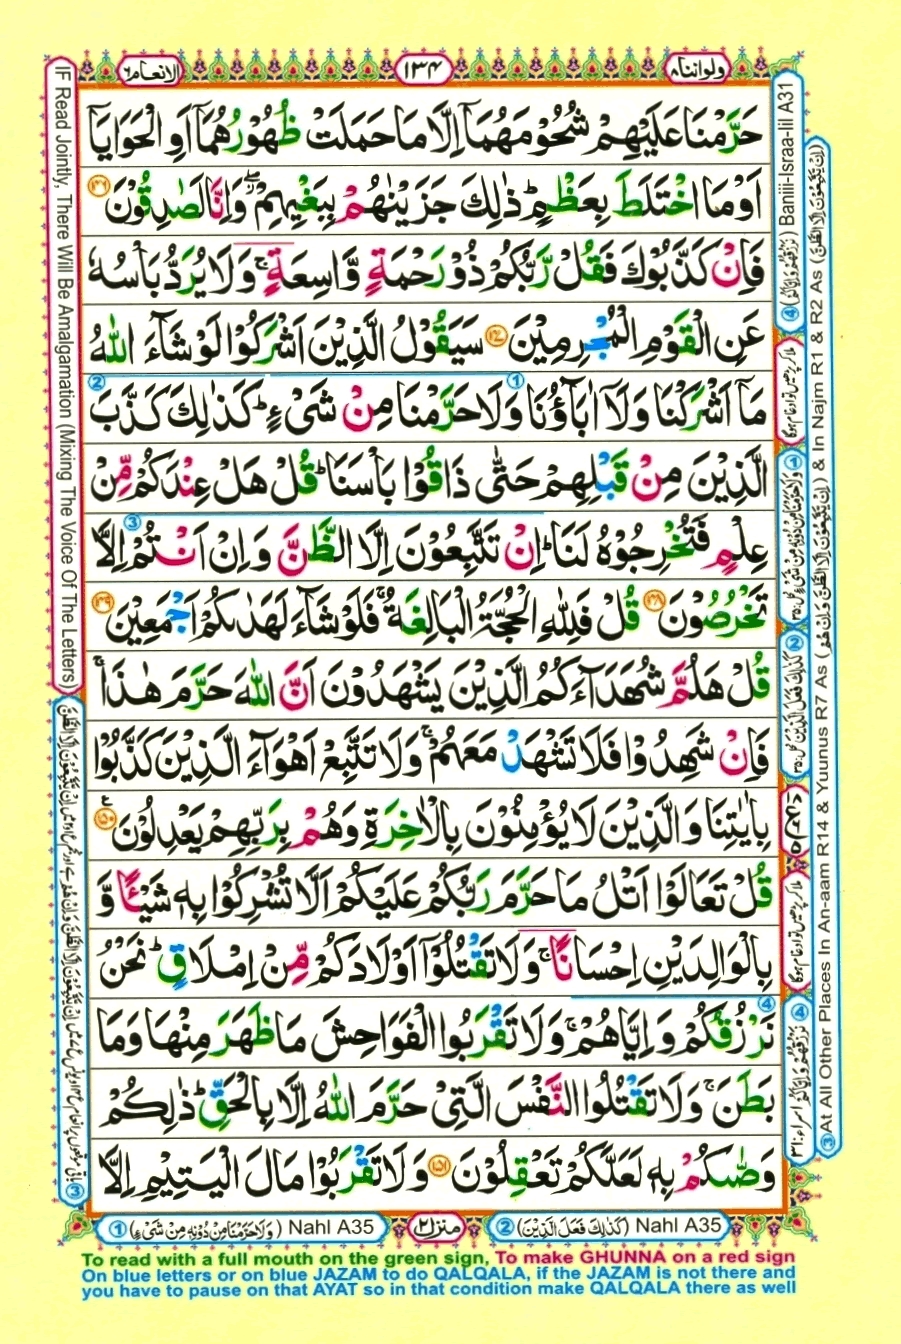 ولواننا۸
۱۳۴
الانعام۶
حَرَّمْنَا عَلَيْهِمْ شُحُوْمَهُمَاۤ اِلَّا مَا حَمَلَتْ ظُهُوْرُهُمَاۤ اَوِ الْحَوَايَاۤ
اَوْ مَا اخْتَلَطَ بِعَظْمٍ ؕ ذٰلِكَ جَزَيْنٰهُمْ بِبَغْيِهِمْ ۖ وَاِنَّا لَصٰدِقُوْنَ ۱۴۶
فَاِنْ كَذَّبُوْكَ فَقُلْ رَّبُّكُمْ ذُوْ رَحْمَةٍ وَّاسِعَةٍ ۚ وَلَا يُرَدُّ بَاْسُهٗ
عَنِ الْقَوْمِ الْمُجْرِمِيْنَ ۱۴۷ سَيَقُوْلُ الَّذِيْنَ اَشْرَكُوْا لَوْ شَآءَ اللّٰهُ
مَاۤ اَشْرَكْنَا وَلَاۤ اٰبَآؤُنَا وَلَا حَرَّمْنَا مِنْ شَیْءٍ ؕ كَذٰلِكَ كَذَّبَ
الَّذِيْنَ مِنْ قَبْلِهِمْ حَتّٰى ذَاقُوْا بَاْسَنَا ؕ قُلْ هَلْ عِنْدَكُمْ مِّنْ
عِلْمٍ فَتُخْرِجُوْهُ لَنَا ؕ اِنْ تَتَّبِعُوْنَ اِلَّا الظَّنَّ وَاِنْ اَنْتُمْ اِلَّا
تَخْرُصُوْنَ ۱۴۸ قُلْ فَلِلّٰهِ الْحُجَّةُ الْبَالِغَةُ ۚ فَلَوْ شَآءَ لَهَدٰىكُمْ اَجْمَعِيْنَ ۱۴۹
قُلْ هَلُمَّ شُهَدَآءَكُمُ الَّذِيْنَ يَشْهَدُوْنَ اَنَّ اللّٰهَ حَرَّمَ هٰذَا ۚ
فَاِنْ شَهِدُوْا فَلَا تَشْهَدْ مَعَهُمْ ۚ وَلَا تَتَّبِعْ اَهْوَآءَ الَّذِيْنَ كَذَّبُوْا
بِاٰيٰتِنَا وَالَّذِيْنَ لَا يُؤْمِنُوْنَ بِالْاٰخِرَةِ وَهُمْ بِرَبِّهِمْ يَعْدِلُوْنَ ۱۵۰
قُلْ تَعَالَوْا اَتْلُ مَا حَرَّمَ رَبُّكُمْ عَلَيْكُمْ اَلَّا تُشْرِكُوْا بِهٖ شَيْـًٔا وَّ
بِالْوَالِدَيْنِ اِحْسَانًا ۚ وَلَا تَقْتُلُوْۤا اَوْلَادَكُمْ مِّنْ اِمْلَاقٍ ؕ نَحْنُ
نَرْزُقُكُمْ وَاِيَّاهُمْ ۚ وَلَا تَقْرَبُوا الْفَوَاحِشَ مَا ظَهَرَ مِنْهَا وَمَا
بَطَنَ ۚ وَلَا تَقْتُلُوا النَّفْسَ الَّتِيْ حَرَّمَ اللّٰهُ اِلَّا بِالْحَقِّ ؕ ذٰلِكُمْ
وَصّٰىكُمْ بِهٖ لَعَلَّكُمْ تَعْقِلُوْنَ ۱۵۱ وَلَا تَقْرَبُوْا مَالَ الْيَتِيْمِ اِلَّا
④ (نَرْزُقُهُمْ وَاِيَّاكُمْ) Baniii-Israa-Iil A31
③At All Other Places In An-aam R14 & Yuunus R7 As (اِنْ يَّتَّبِعُوْنَ اِلَّا الظَّنَّ وَاِنْ هُمْ) & In Najm R1 & R2 As (اِنْ يَّتَّبِعُوْنَ اِلَّا الظَّنَّ)
IF Read Jointly, There Will Be Amalgamation (Mixing The Voice Of The Letters)
① (وَلَا حَرَّمْنَا مِنْ دُوْنِهٖ مِنْ شَیْءٍ) Nahl A35
منزل۲
② (كَذٰلِكَ فَعَلَ الَّذِيْنَ) Nahl A35
To read with a full mouth on the green sign, To make GHUNNA on a red sign
On blue letters or on blue JAZAM to do QALQALA, if the JAZAM is not there and
you have to pause on that AYAT so in that condition make QALQALA there as well